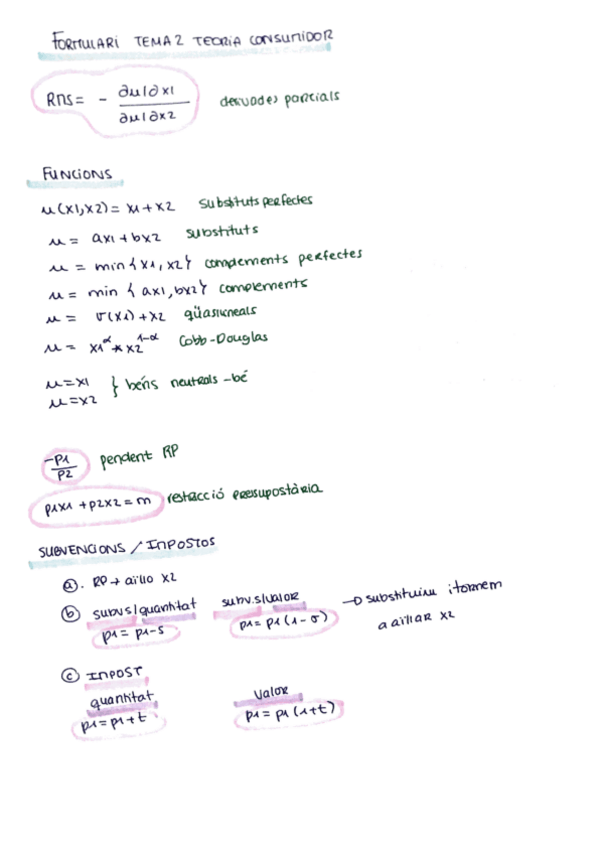 FORMULARI TEMA 2 TEORIA CONSUMIDOR
RMS = - ∂u/∂x1 / ∂u/∂x2 derivades parcials
FUNCIONS
u(x1,x2) = x1 + x2 substituts perfectes
u = ax1 + bx2 substituts
u = min{x1, x2} complements perfectes
u = min {ax1, bx2} complements
u = v(x1) + x2 qüasilineals
u = x1^α * x2^1-α Cobb-Douglas
u = x1
u = x2 } béns neutrals - bé
-p1/p2 pendent RP
p1x1 + p2x2 = m restricció pressupostària
SUBVENCIONS / IMPOSTOS
a. RP → aïllo x2
b subvs/quantitat subv.s/valor → substituïm i tornem
p1 = p1-s p1 = p1(1-σ) a aïllar x2
c IMPOST
quantitat valor
p1 = p1+t p1 = p1(1+t)